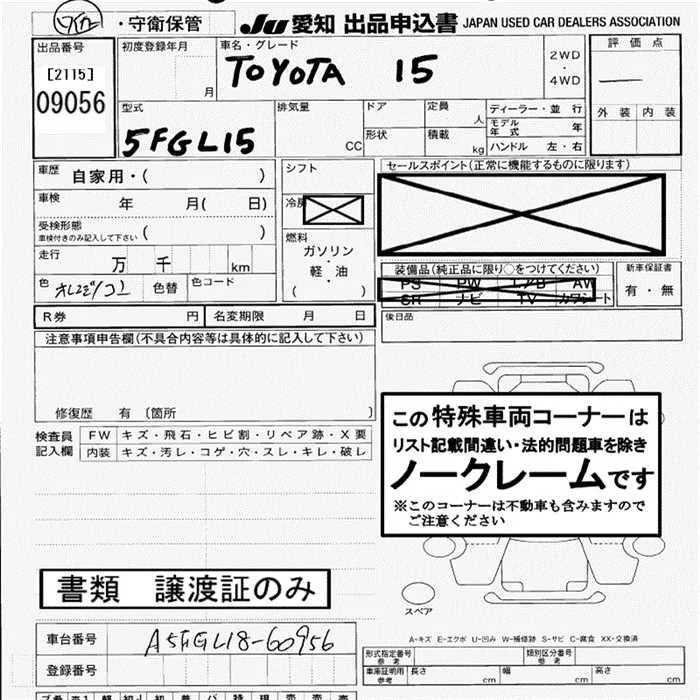 ・守衛保管
Ju 愛知 出品申込書 JAPAN USED CAR DEALERS ASSOCIATION
出品番号
[2115]
09056
初度登録年月
月
車名・グレード
TOYOTA 15
2WD
・
4WD
評価点
外装 内装
型式
5FGL15
排気量
CC
ドア
形状
定員
人
積載
kg
ディーラー・並行
モデル年式 年
ハンドル 左・右
車歴 自家用・( )
車検 年 月( 日)
受検形態
車検付きのみ記入して下さい ( )
走行 万 千 km
色 色替 色コード
シフト
冷房
燃料
ガソリン
・
軽・油
( )
セールスポイント(正常に機能するものに限ります)
装備品(純正品に限り○をつけてください)
PS PW エアB AW
SR ナビ TV カワシート
新車保証書
有・無
後日品
R券 円 名変期限 月 日
注意事項申告欄(不具合内容等は具体的に記入して下さい)
修復歴 有 〔箇所 〕
検査員
記入欄
FW キズ・飛石・ヒビ割・リペア跡・X要
内装 キズ・汚レ・コゲ・穴・スレ・キレ・破レ
この特殊車両コーナーは
リスト記載間違い・法的問題車を除き
ノークレームです
※このコーナーは不動車も含みますので
ご注意ください
書類 譲渡証のみ
スペア
A-キズ E-エクボ U-凹み W-補修跡 S-サビ C-腐食 XX-交換済
車台番号 A5FGL18-60956
登録番号
形式指定番号
参考
類別区分番号
参考
車庫証明用
参考
長さ cm 幅 cm 高さ cm